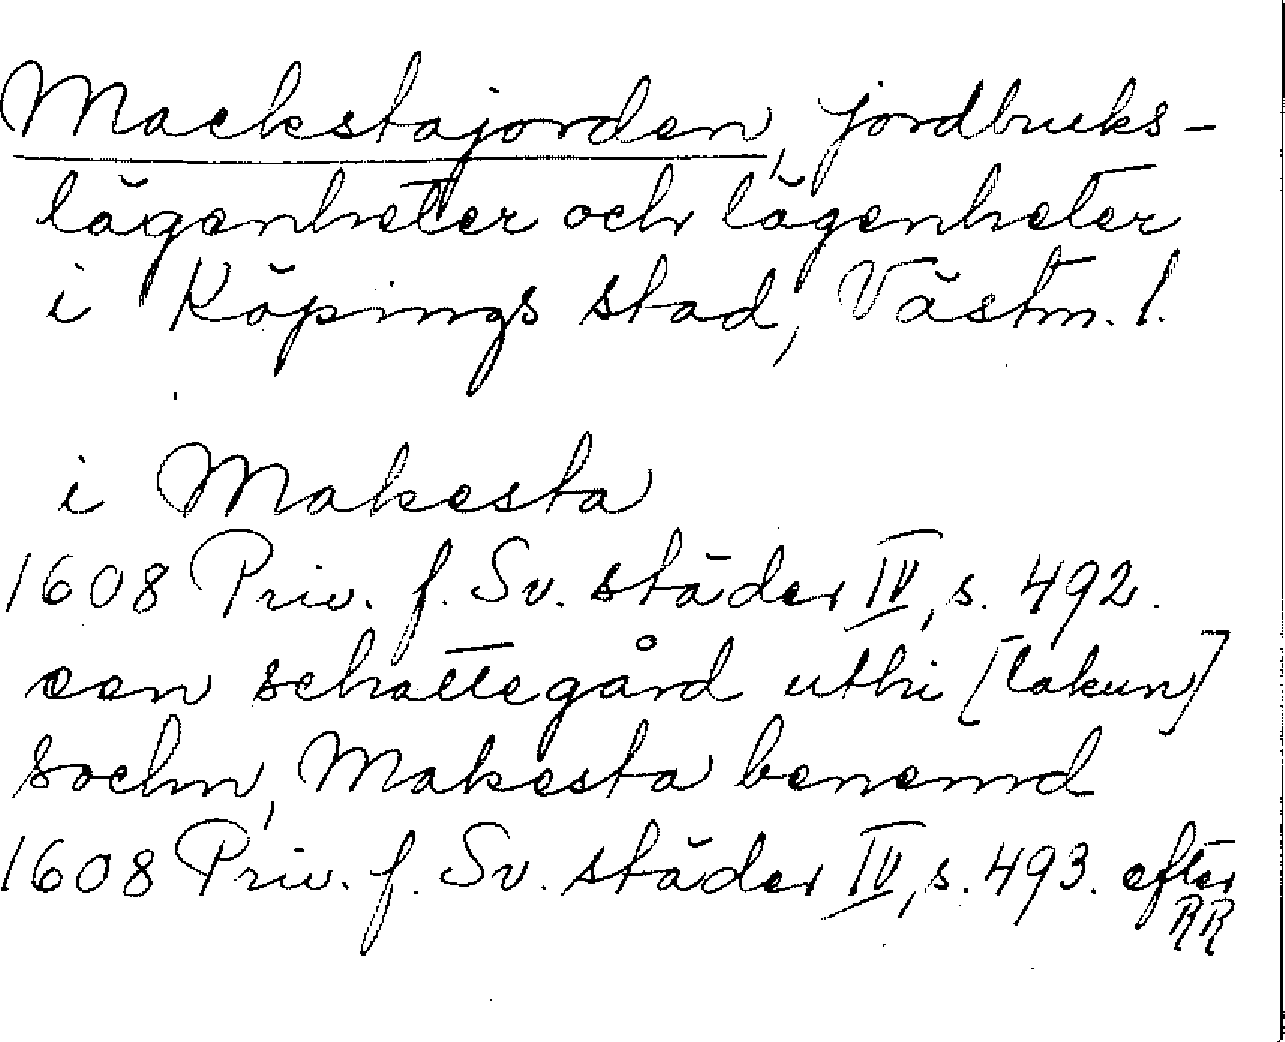 Mackstajorden, jordbruks-
lägenheter och lägenheter
i Köpings stad, Västm. l.
i Makesta
1608 Priv. f. Sv. städer IV, s. 492.
een schattegård uthi [lakun]
sochn, Makesta benemd
1608 Priv. f. Sv. städer IV, s. 493. efter
RR